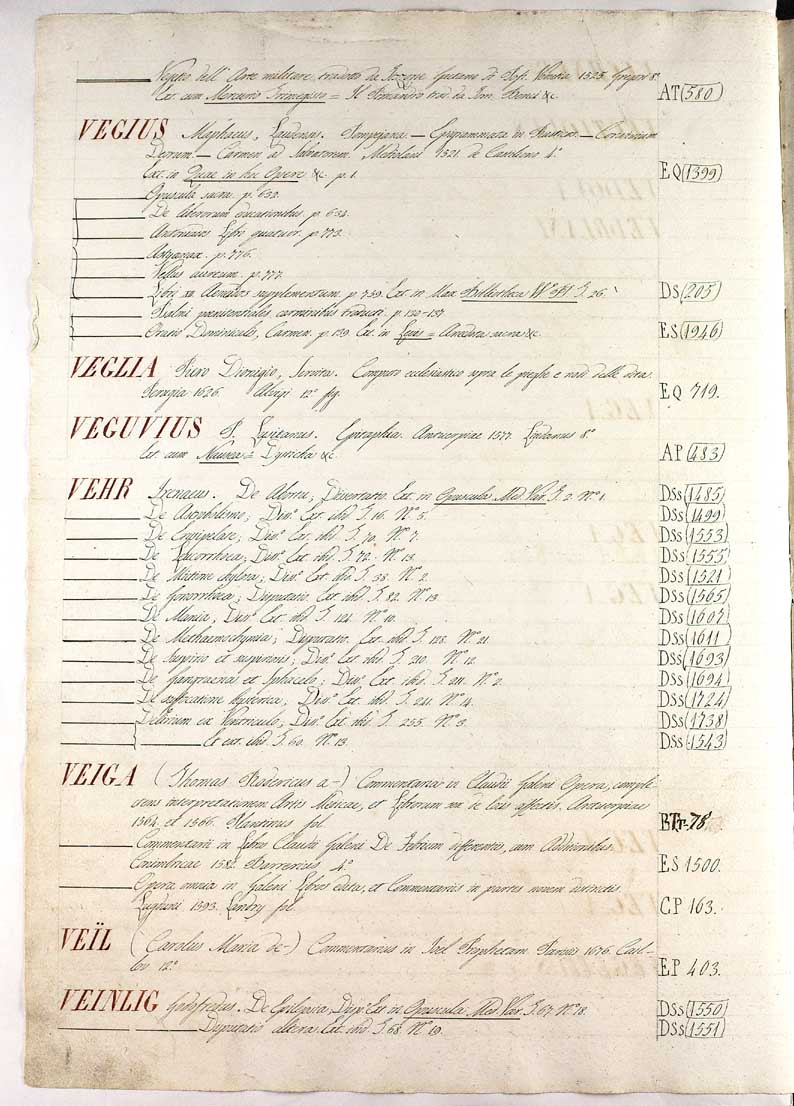 Vegezio dell' Arte militare, tradotto da Tizzone Gaetano di Pofi. Venetia 1525. Gregori 8.º
Ext. cum Mercurio Trimegisto = Il Pimandro trad. da Tom. Benci &c. AT (580)
VEGIUS Maphaeus, Laudensis. Pompejana. — Epigrammata in Rusticos. — Convivium
Deorum. — Carmen ad Salvatorem. Mediolani 1521. de Castilliono 4.º
Ext. in Quae in hoc Opere &c. p. 1. EQ (1399)
Opuscula sacra. p. 632.
De liberorum educatione. p. 634.
Antoniados Libri quatuor. p. 773.
Astyanax. p. 776.
Vellus aureum. p. 777.
Libri XII Aeneidos supplementum. p. 759. Ext. in Max. Bibliotheca VV. PP. T. 26. DS (205)
Psalmi poenitentiales carminibus traducti. p. 130-137
Oratio Dominicalis, Carmen. p. 139. Ext. in = Anecdota sacra &c. ES (1946)
VEGLIA Piero Dionigio, Servita. Computo ecclesiastico sopra le pieghe e nodi delle dita.
Perugia 1626. Aluigi 12.º fig. EQ 719.
VEGUVIUS P. Lusitanus. Epitaphia. Antverpiae 1577. 8.º
Ext. cum = Lyricha &c. AP (483)
VEHR Irenaeus. De Abortu; Dissertatio. Ext. in Opuscula Med. Var. T. 2. N.º 1. DSs (1485)
De Ascephilismo; Dis.º Ext. ibid. T. 16. N.º 5. DSs (1499)
De Erysipelate; Dis.º Ext. ibid. T. 70. N.º 7. DSs (1553)
De Leucorrhoea; Dis.º Ext. ibid. T. 72. N.º 13. DSs (1555)
De Mictione chylosa; Dis.º Ext. ibid. T. 38. N.º 2. DSs (1521)
De Gonorrhoea; Disputatio. Ext. ibid. T. 82. N.º 13. DSs (1565)
De Mania; Dis.º Ext. ibid. T. 124. N.º 10. DSs (1607)
De Methaemochymia; Disputatio. Ext. ibid. T. 128. N.º 21. DSs (1611)
De Suspirio et suspiriosis; Dis.º Ext. ibid. T. 210. N.º 12. DSs (1693)
De Gangraena et Sphacelo; Dis.º Ext. ibid. T. 211. N.º 2. DSs (1694)
De suffocatione hysterica; Dis.º Ext. ibid. T. 241. N.º 4. DSs (1724)
Delirium ex Ventriculo; Dis.º Ext. ibi. T. 255. N.º 3. DSs (1738)
Et ext. ibid. T. 60. N.º 13. DSs (1543)
VEIGA (Thomas Rodericus a-) Commentaria in Claudii Galeni Opera, comple-
ctens interpretationem Artis Medicae, et Librorum sex de locis affectis. Antverpiae
1564. et 1566. Plantinus fol. 78
Commentarii in Libros Claudii Galeni De Febrium differentiis, cum
Conimbricae 1582. Barrerius 4.º ES 1500.
Opera omnia in Galeni Libros edita, et Commentariis in partes novem distinctis.
Lugduni 1593. Landry fol. CP 163.
VEÏL (Carolus Maria de-) Commentarius in Joel Prophetam. Parisiis 1676. Cail-
lou 12.º EP 403.
VEINLIG Godofredus. De Epilepsia, Dis.º Ext. in Opuscula Med. Var. T. 67. N.º 18. DSs (1550)
Disputatio altera. Ext. ibid. T. 68. N.º 19. DSs (1551)